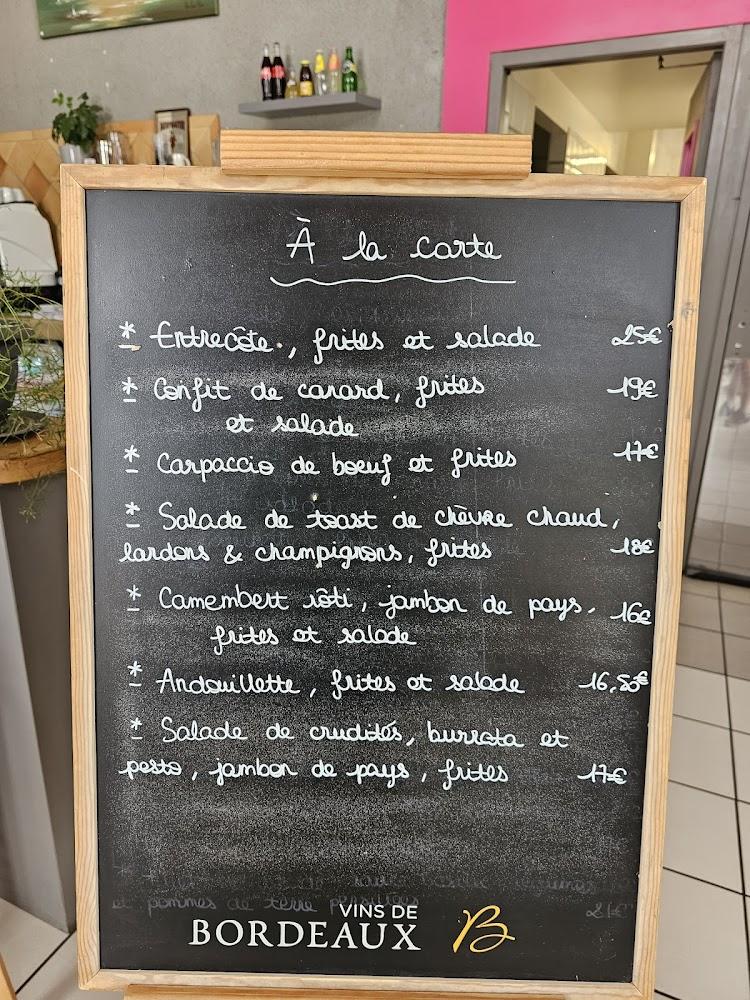 À la carte
* Entrecôte, frites et salade 25€
* Confit de canard, frites 19€
et salade
* Carpaccio de boeuf et frites 17€
* Salade de toast de chèvre chaud,
lardons & champignons, frites 18€
* Camembert rôti, jambon de pays, 16€
frites et salade
* Andouillette, frites et salade 16,50€
* Salade de crudités, burrata et
pesto, jambon de pays, frites 17€
et pommes de terre
VINS DE
BORDEAUX B